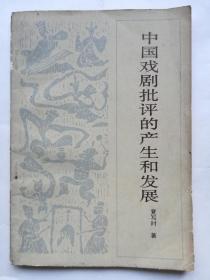 中国戏剧批评的产生和发展
夏写时 著